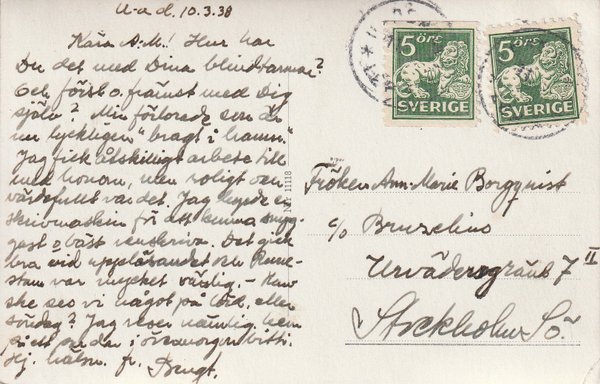 U-a d. 10.3.38
Kära A-M.! Hur har
Du det med Dina blindtarmar?
Och först o. främst med Dig
själv? Min förlorade son är
nu lyckligen "bragt i hamn."
Jag fick åtskilligt arbete till
med honom, men roligt och
värdefullt var det. Jag
skrivmaskin för att kunna
o bäst renskriva. Det gick
bra vid uppläsandet och Rune-
stam var mycket vänlig - Kan-
ske ses vi något på lörd. eller
söndag? Jag reser nämligen hem
i övermorgon bitti.
Hej. hälsn. fr. Bengt.
5 ÖRE
SVERIGE
5 ÖRE
SVERIGE
11118
Fröken Ann-Marie Borgquist
c/o Bruzelius
Urvädersgränd 7 II
Stockholm Sö.